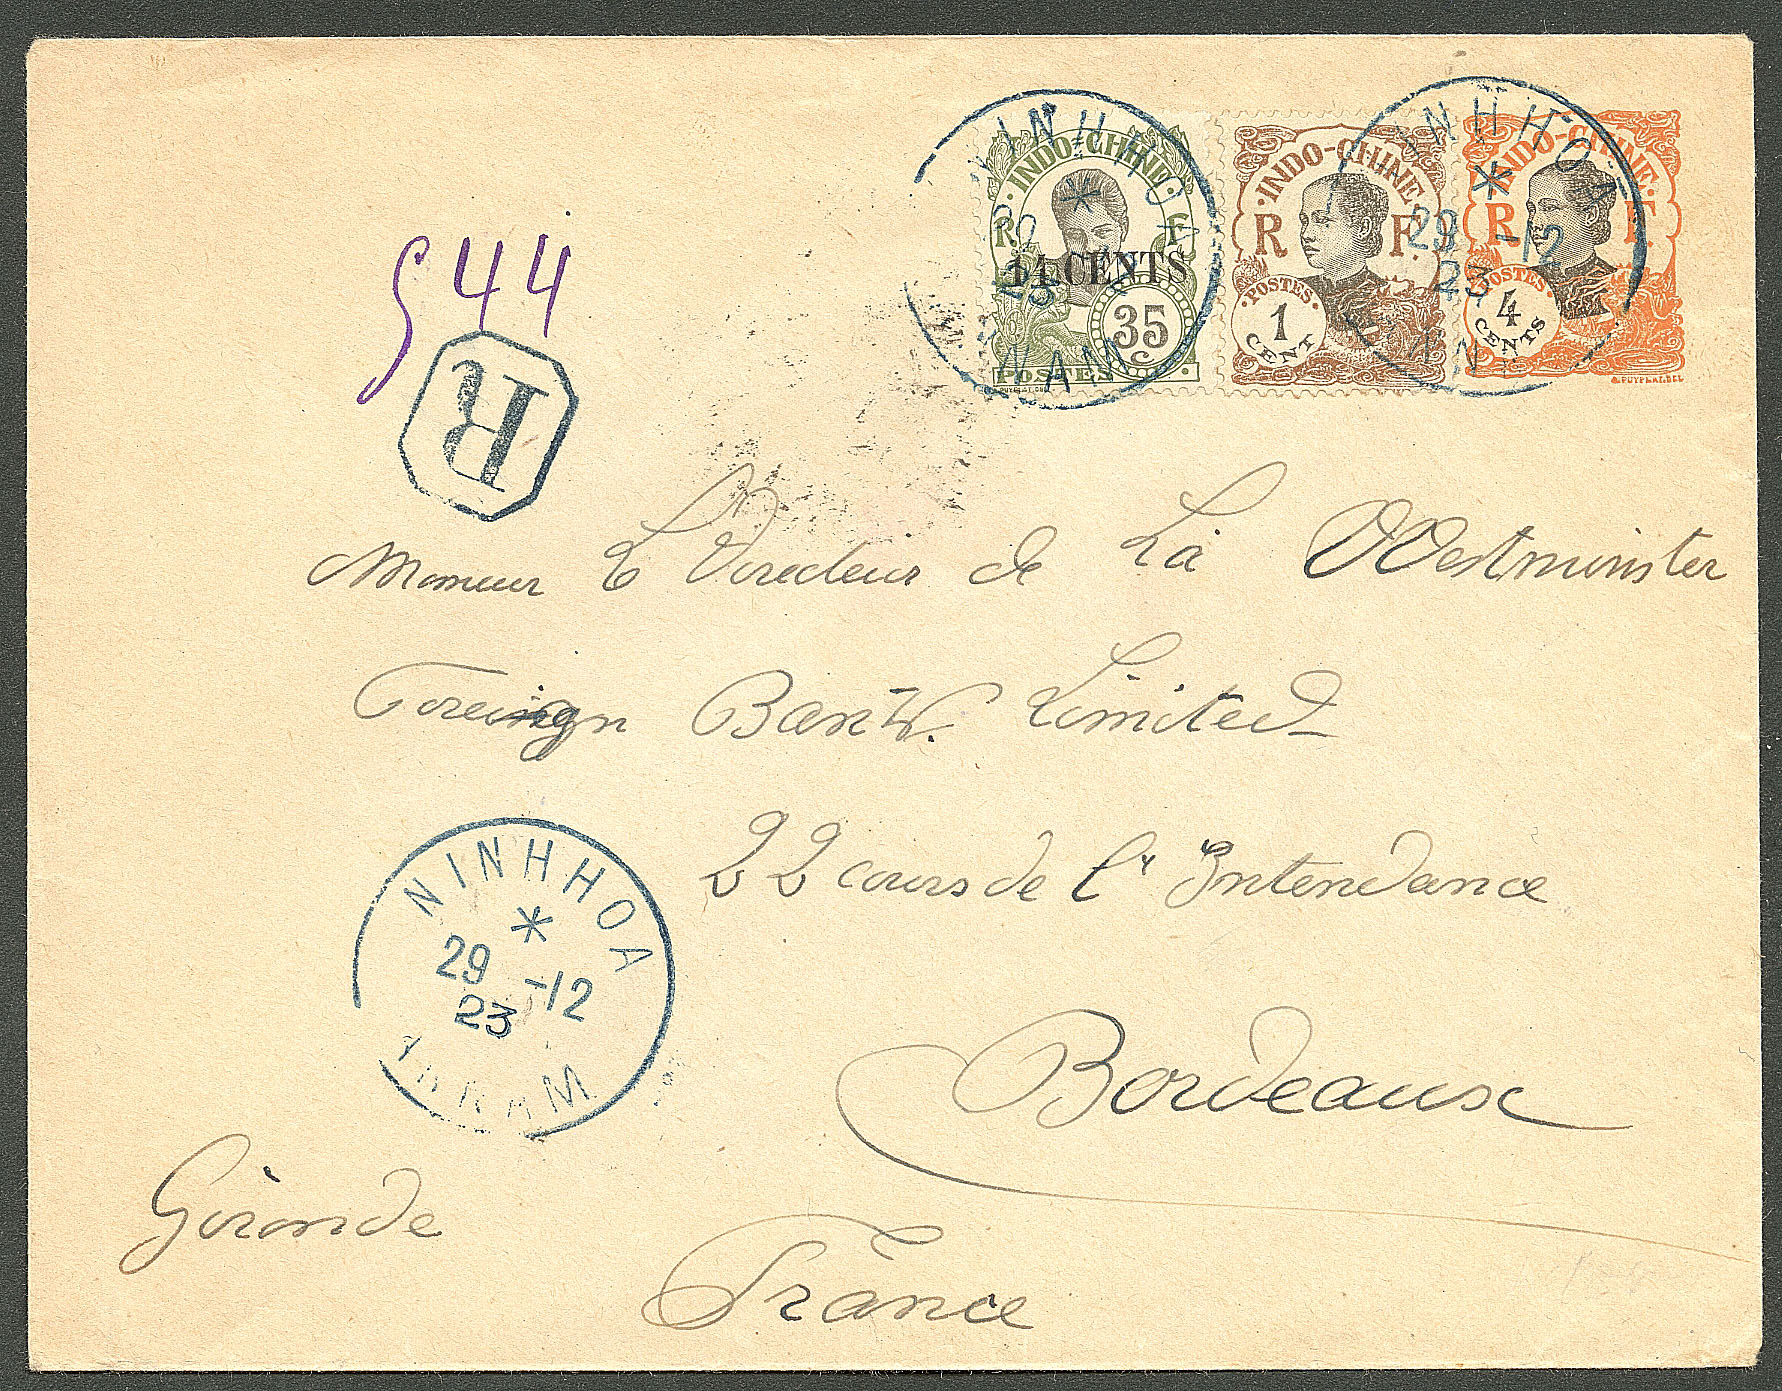 INDO-CHINE
R F
14 CENTS
35 c
POSTES
INDO-CHINE
R F
POSTES
1
CENT
INDO-CHINE
R F
POSTES
4
CENTS
A. PUYPLAT. DEL
NINHHOA
23
NAM
NINHHOA
29 -12
23
944
R
Monsieur le Directeur de La Westminster
Foreingn Bank. Limited
22 cours de l'Intendance
NINHHOA
29 -12
23
ANNAM
Bordeaux
Gironde
France